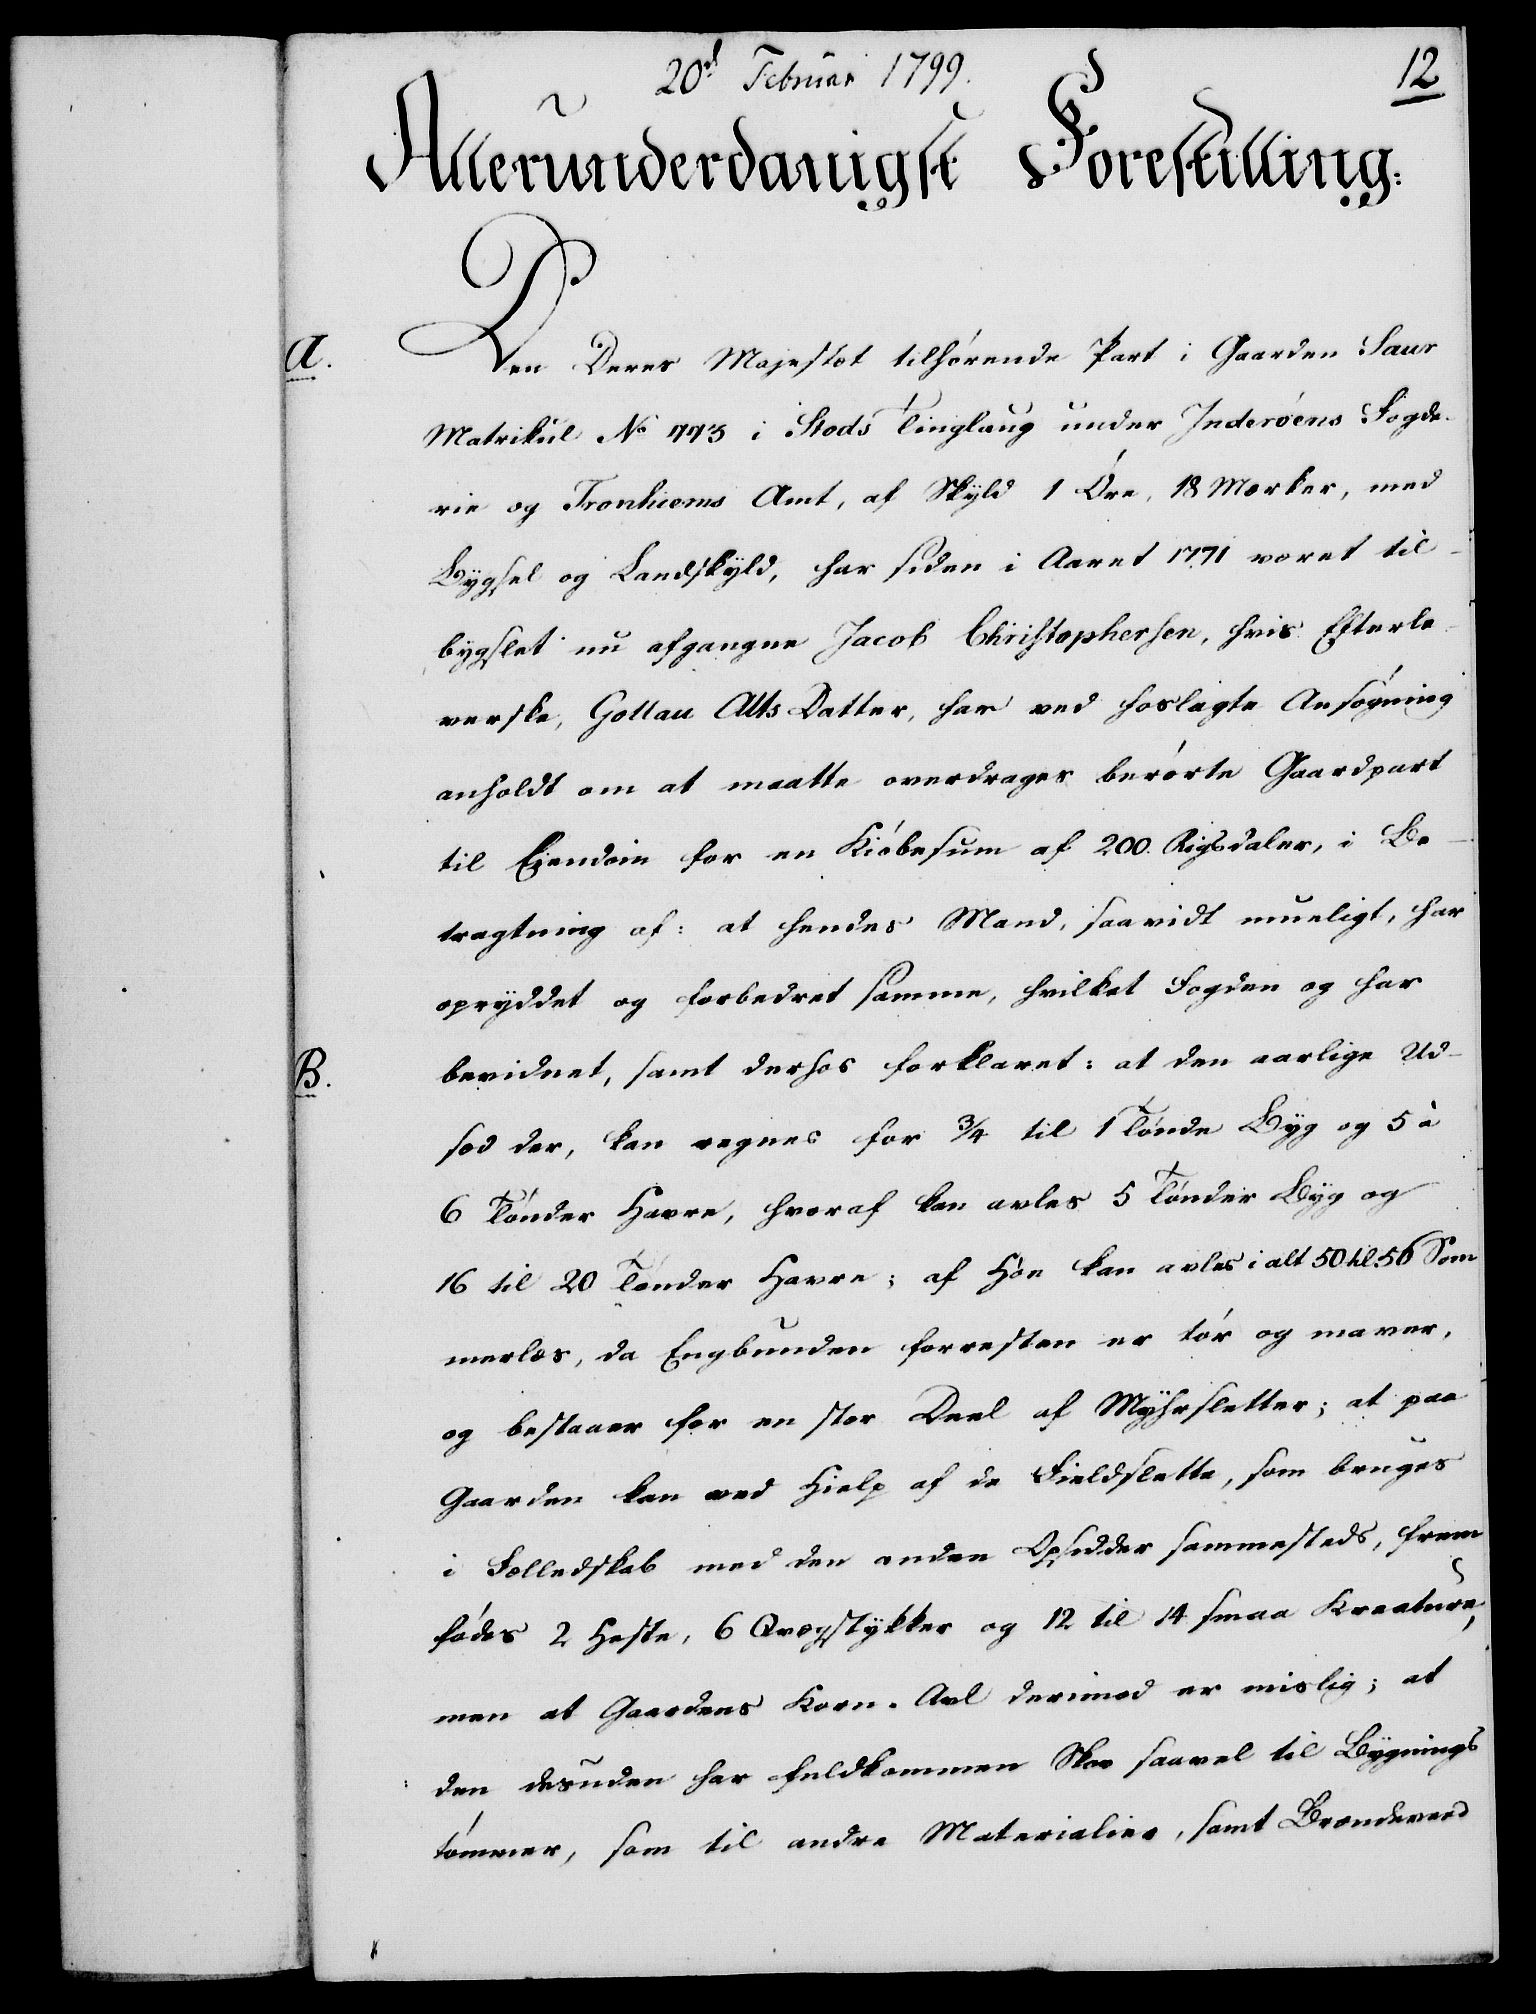 20d Februar 1799.
12
Allerunderdanigst Forestilling:
a.
Den Deres Majestæt tilhørende Part i Gaarden Saur
Matrikul No 773 i Stods Tinglaug under Inderøens Fogde-
rie og Tronhiems Amt, af Skyld 1 Øre, 18 Marker, med
Bygsel og Landskyld, har siden i Aaret 1771 været til-
bygslet nu afgangne Jacob Christophersen, hvis Efterle-
verske, Gollau Atts Datter, har ved hoslagte Ansøgning
anholdt om at maatte overdrages berørte Gaardpart
til Eiendom for en Kiøbesum af 200 Rigsdaler, i Be-
tragtning af: at hendes Mand, saavidt mueligt, har
opryddet og forbedret samme, hvilket Fogden og har
B.
bevidnet, samt derhos forklaret: at den aarlige Ud-
sæd der, kan regnes for 3/4 til 1 Tønde Byg og 5 à
6 Tønder Havre, hvoraf kan avles 5 Tønder Byg og
16 til 20 Tønder Havre; af Høe kan avles i alt 50 til 56 Som
merlæs, da Engbunden forresten er tør og maver,
og bestaaer for en stor Deel af Myhrsletter; at paa
Gaarden kan ved Hielp af de Fieldslette, som bruges
i Fælledskab med den anden Opsidder sammesteds, frem
fødes 2 Heste, 6 Qvægstykker og 12 til 14 smaa Kreature,
men at Gaardens Korn-Avl derimod er mislig; at
den desuden har fuldkommen Skov saavel til Bygnings
tømmer, som til andre Materialier, samt Brændeveed